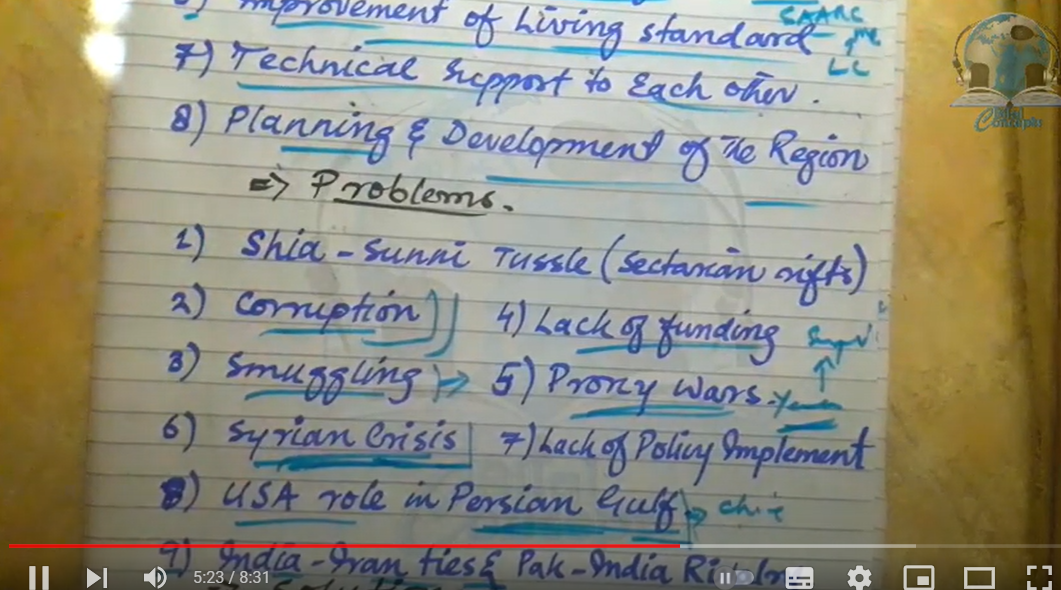 Improvement of Living standard SAARC
LC
7) Technical Support to Each other.
8) Planning & Development of the Region
=> Problems.
1) Shia-Sunni Tussle (Sectarian rifts)
2) Corruption 4) Lack of funding
3) Smuggling 5) Proxy Wars. Yemen
6) Syrian Crisis 7) Lack of Policy Implement
8) USA role in Persian Gulf
9) India-Iran ties & Pak-India
5:23 / 8:31
Concepts